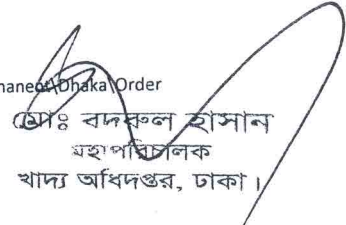 \Dhaka\Order
মোঃ বদরুল হাসান
মহাপরিচালক
খাদ্য অধিদপ্তর, ঢাকা।